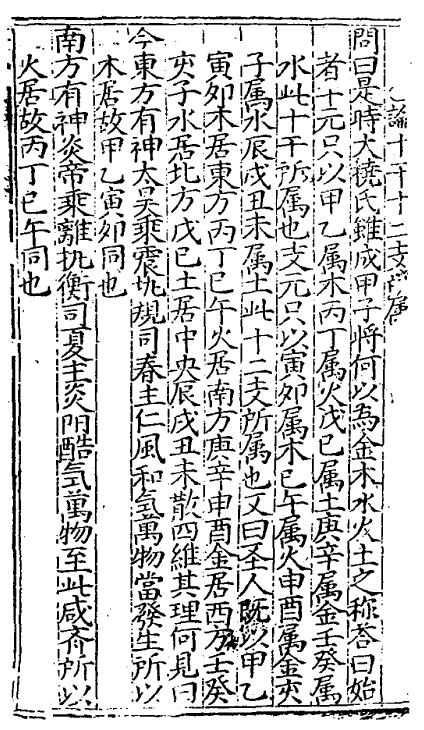 論十干十二支所属
問曰是時大撓氏虽成甲子将何以為金木水火土之称荅曰始
者十元只以甲乙属木丙丁属火戊己属土庚辛属金壬癸属
水此十干所属也支元只以寅夘属木巳午属火申酉属金亥
子属水辰戌丑未属土此十二支所属也又曰圣人既以甲乙
寅夘木居東方丙丁巳午火居南方庚辛申酉金居西方壬癸
亥子水居北方戊己土居中央辰戌丑未散四維其理何見曰
今東方有神太昊乗震执規司春主仁風和氣萬物當發生所以
木居故甲乙寅夘同也
南方有神炎帝乗離执衡司夏主炎阳酷氣萬物至此咸齐所以
火居故丙丁巳午同也